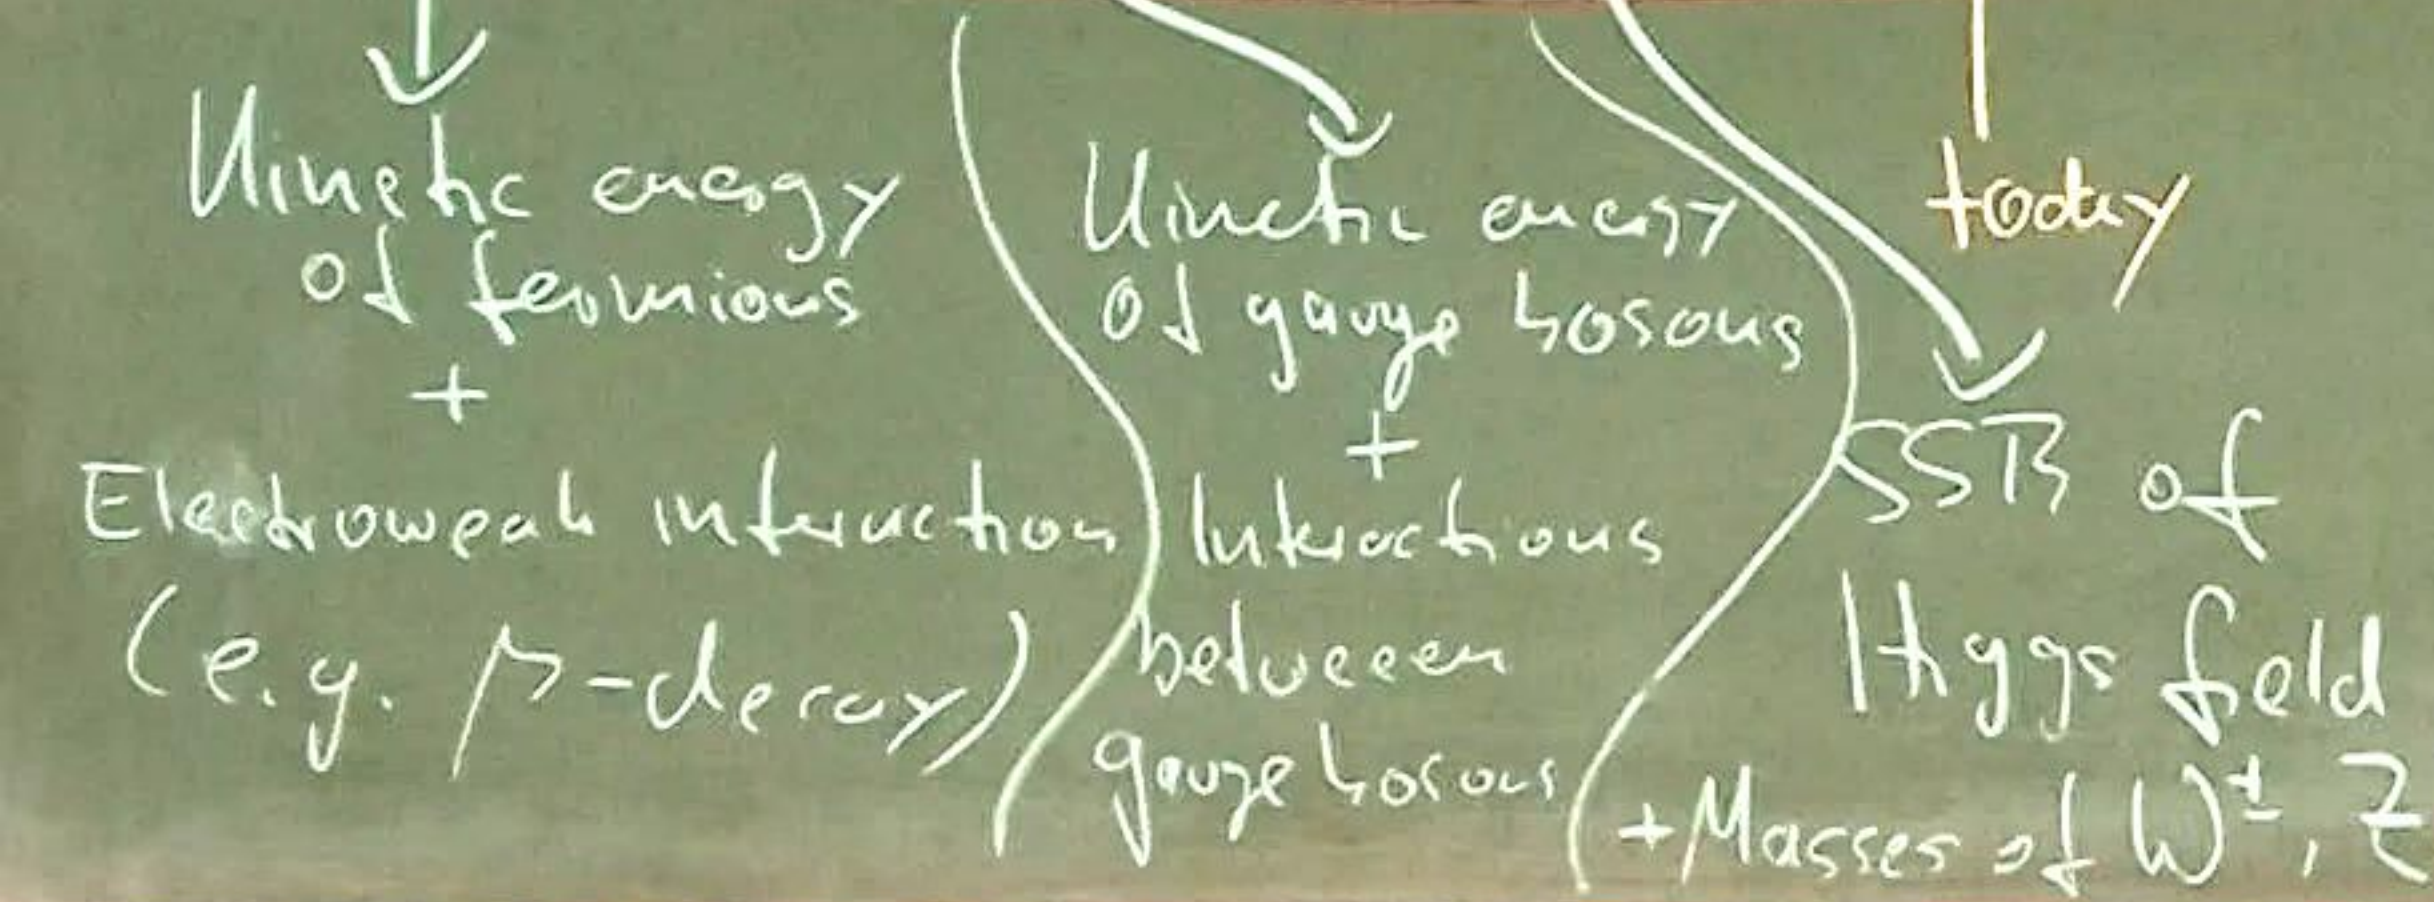 Kinetic energy
of fermions
+
Electroweak interaction
(e.g. μ-decay)
Kinetic energy
of gauge bosons
+
Interactions
between
gauge bosons
today
SSB of
Higgs field
+ Masses of W±, Z